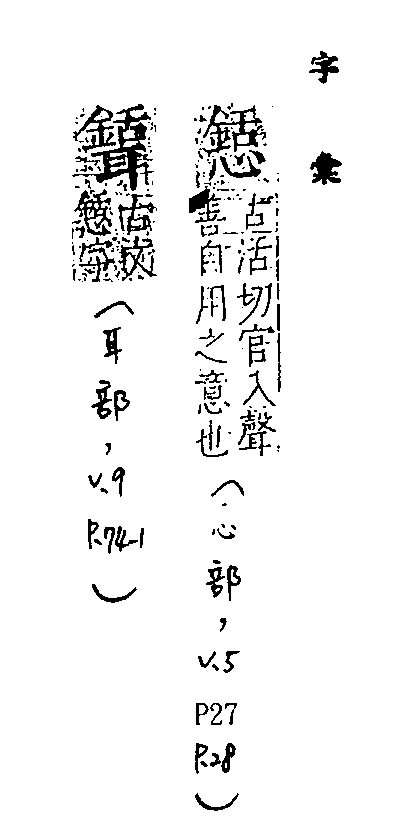 字彙
古活切官入聲
善自用之意也
(心部,v.5 P27 P.28)
古文
字
(耳部,v.9 P.74-1)